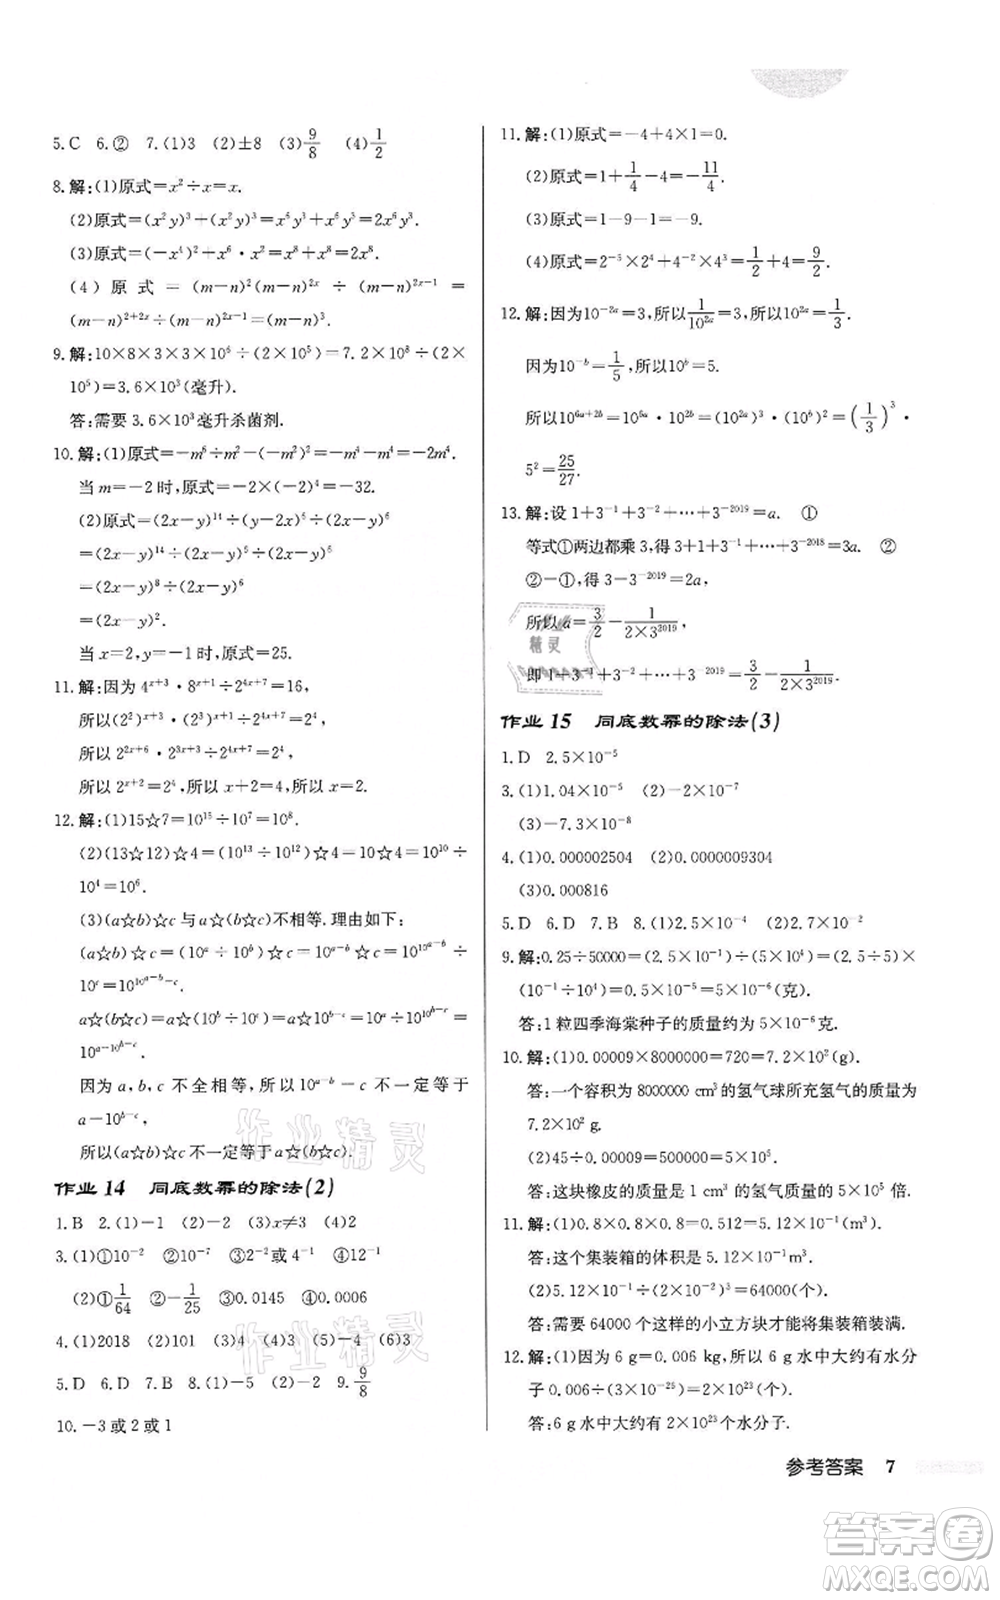 5.C 6.② 7.(1)3 (2)±8 (3)9/8 (4)1/2
8.解:(1)原式=x²÷x=x.
(2)原式=(x²y)³+(x²y)³=x⁶y³+x⁶y³=2x⁶y³.
(3)原式=(-x⁴)²+x⁶·x²=x⁸+x⁸=2x⁸.
(4)原式=(m-n)²(m-n)^{2x}÷(m-n)^{2x-1}=
(m-n)^{2+2x}÷(m-n)^{2x-1}=(m-n)³.
9.解:10×8×3×3×10⁵÷(2×10⁵)=7.2×10⁸÷(2×
10⁵)=3.6×10³(毫升).
答:需要3.6×10³毫升杀菌剂.
10.解:(1)原式=-m⁶÷m²-(-m²)²=-m⁴-m⁴=-2m⁴.
当m=-2时,原式=-2×(-2)⁴=-32.
(2)原式=(2x-y)¹⁴÷(2x-y)⁶÷(2x-y)⁶
=(2x-y)¹⁴÷(2x-y)¹²
=(2x-y)².
当x=2,y=-1时,原式=25.
11.解:因为4^{x+3}·8^{x+1}÷2^{4x+7}=16,
所以(2²)^{x+3}·(2³)^{x+1}÷2^{4x+7}=2⁴,
所以2^{2x+6}·2^{3x+3}÷2^{4x+7}=2⁴,
所以2^{x+2}=2⁴,所以x+2=4,所以x=2.
12.解:(1)15☆7=10¹⁵÷10⁷=10⁸.
(2)(13☆12)☆4=(10¹³÷10¹²)☆4=10☆4=10¹⁰÷
10⁴=10⁶.
(3)(a☆b)☆c与a☆(b☆c)不相等.理由如下:
(a☆b)☆c=(10^a÷10^b)☆c=10^{a-b}☆c=10^{10^{a-b}}÷
10^c=10^{10^{a-b}-c}.
a☆(b☆c)=a☆(10^b÷10^c)=a☆10^{b-c}=10^a÷10^{10^{b-c}}=
10^{a-10^{b-c}}.
因为a,b,c不全相等,所以10^{a-b}-c不一定等于
a-10^{b-c},
所以(a☆b)☆c不一定等于a☆(b☆c).
作业14 同底数幂的除法(2)
1.B 2.(1)-1 (2)-2 (3)x≠3 (4)2
3.(1)①10⁻² ②10⁻⁷ ③2⁻²或4⁻¹ ④12⁻²
(2)①1/64 ②-1/25 ③0.0145 ④0.0006
4.(1)2018 (2)101 (3)4 (4)3 (5)-4 (6)3
5.D 6.D 7.B 8.(1)-2 (2)1 9.9/8
10.-3或2或1
11.解:(1)原式=-4+4×1=0.
(2)原式=1+1/4-4=-11/4.
(3)原式=1-9-1=-9.
(4)原式=2⁻⁵×2⁴+4⁻²×4³=1/2+4=9/2.
12.解:因为10^{-2a}=3,所以1/10^{2a}=3,所以10^{2a}=1/3.
因为10^{-b}=1/5,所以10^b=5.
所以10^{6a+2b}=10^{6a}·10^{2b}=(10^{2a})³·(10^b)²=(1/3)³·
5²=25/27.
13.解:设1+3⁻¹+3⁻²+…+3⁻²⁰¹⁹=a. ①
等式①两边都乘3,得3+1+3⁻¹+…+3⁻²⁰¹⁸=3a. ②
②-①,得3-3⁻²⁰¹⁹=2a,
所以a=3/2-1/(2×3²⁰¹⁹),
即1+3⁻¹+3⁻²+…+3⁻²⁰¹⁹=3/2-1/(2×3²⁰¹⁹).
作业15 同底数幂的除法(3)
1.D 2.5×10⁻⁵
3.(1)1.04×10⁻⁵ (2)-2×10⁻⁷
(3)-7.3×10⁻⁸
4.(1)0.000002504 (2)0.0000009304
(3)0.000816
5.D 6.D 7.B 8.(1)2.5×10⁻⁴ (2)2.7×10⁻²
9.解:0.25÷50000=(2.5×10⁻¹)÷(5×10⁴)=(2.5÷5)×
(10⁻¹÷10⁴)=0.5×10⁻⁵=5×10⁻⁶(克).
答:1粒四季海棠种子的质量约为5×10⁻⁶克.
10.解:(1)0.00009×8000000=720=7.2×10²(g).
答:一个容积为8000000 cm³的氢气球所充氢气的质量为
7.2×10² g.
(2)45÷0.00009=500000=5×10⁵.
答:这块橡皮的质量是1 cm³的氢气质量的5×10⁵倍.
11.解:(1)0.8×0.8×0.8=0.512=5.12×10⁻¹(m³).
答:这个集装箱的体积是5.12×10⁻¹m³.
(2)5.12×10⁻¹÷(2×10⁻²)³=64000(个).
答:需要64000个这样的小立方块才能将集装箱装满.
12.解:(1)因为6 g=0.006 kg,所以6 g水中大约有水分
子0.006÷(3×10⁻²⁶)=2×10²³(个).
答:6 g水中大约有2×10²³个水分子.
参考答案 7
作业精灵
作业精灵
作业
精灵
答案卷
MXQE.COM